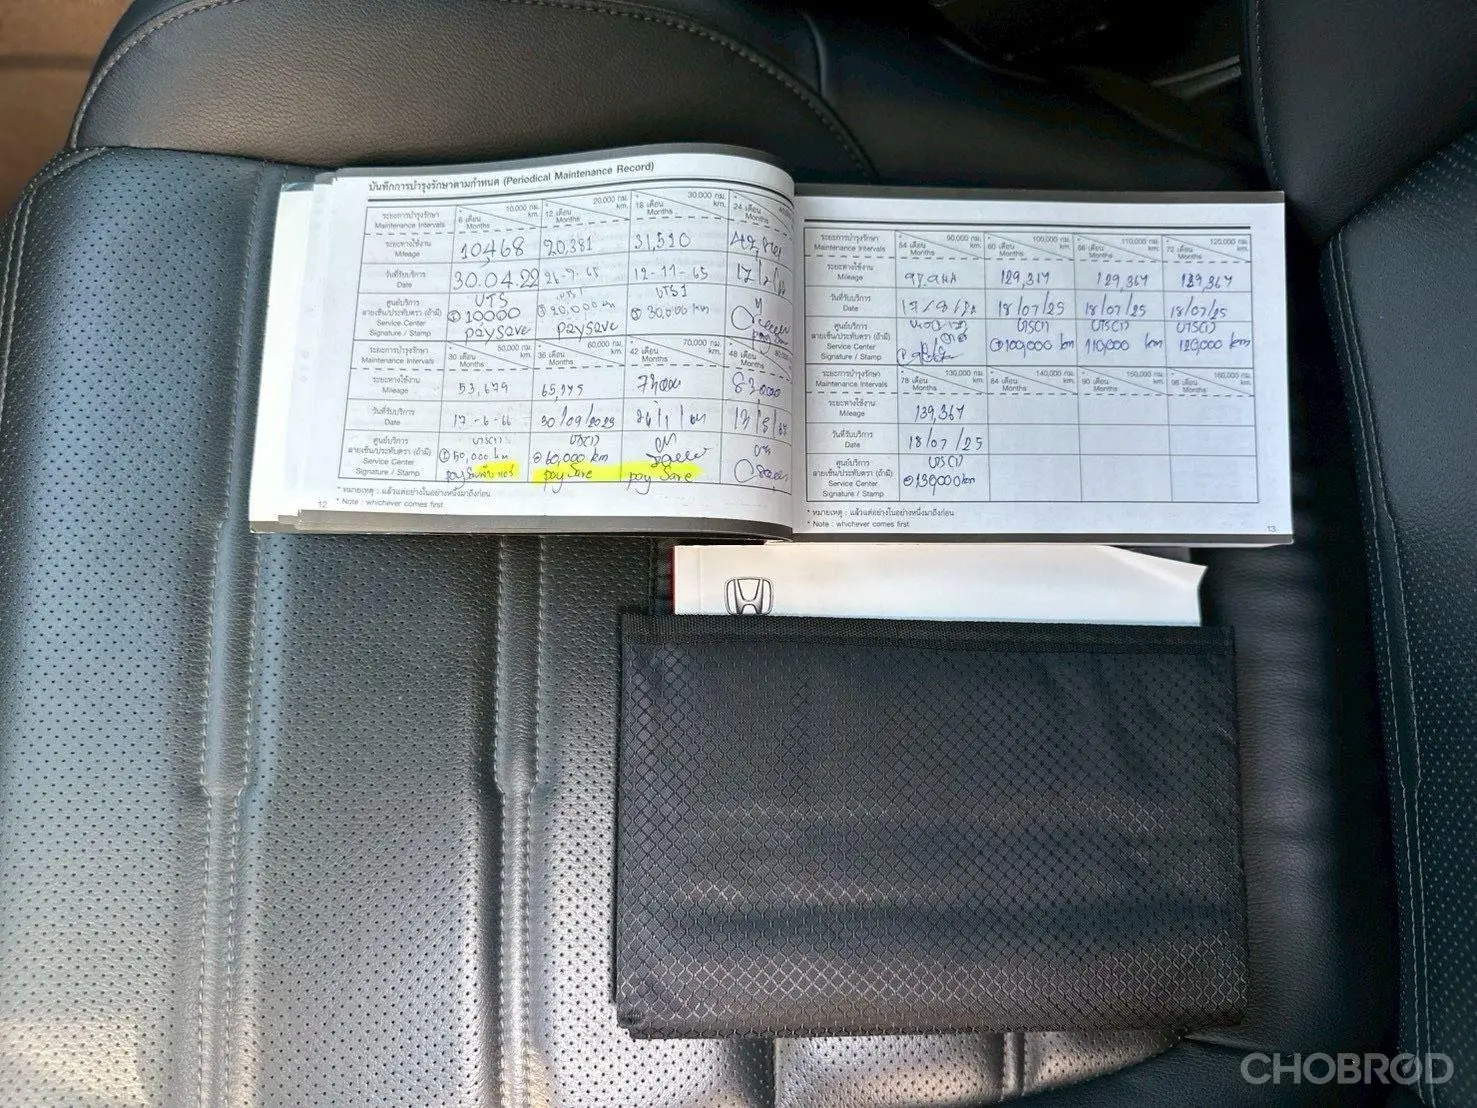 บันทึกการบำรุงรักษาตามกำหนด (Periodical Maintenance Record)
ระยะการบำรุงรักษา Maintenance Intervals * 6 เดือน Months 10,000 กม. km. * 12 เดือน Months 20,000 กม. km. * 18 เดือน Months 30,000 กม. km. * 24 เดือน Months
ระยะทางใช้งาน Mileage 10,468 20,381 31,510
วันที่รับบริการ Date 30.04.22 26-9-65 12-11-65
ศูนย์บริการ ลายเซ็น/ประทับตรา (ถ้ามี) Service Center Signature / Stamp UTS 10000 paysave UTS1 20,000 km paysave UTS1 30,000 km
ระยะการบำรุงรักษา Maintenance Intervals * 30 เดือน Months 50,000 กม. km. * 36 เดือน Months 60,000 กม. km. * 42 เดือน Months 70,000 กม. km. * 48 เดือน Months
ระยะทางใช้งาน Mileage 53,679 83,000
วันที่รับบริการ Date 17-6-66 30/09/2023
ศูนย์บริการ ลายเซ็น/ประทับตรา (ถ้ามี) Service Center Signature / Stamp UTS(1) 50,000 km UTS(1) 60,000 km pay save pay save
* หมายเหตุ : แล้วแต่อย่างใดอย่างหนึ่งมาถึงก่อน
* Note : whichever comes first
12
ระยะการบำรุงรักษา Maintenance Intervals * 54 เดือน Months 90,000 กม. km. * 60 เดือน Months 100,000 กม. km. * 66 เดือน Months 110,000 กม. km. * 72 เดือน Months 120,000 กม. km.
ระยะทางใช้งาน Mileage 129,367 129,367 139,367
วันที่รับบริการ Date 18/07/25 18/07/25 18/07/25
ศูนย์บริการ ลายเซ็น/ประทับตรา (ถ้ามี) Service Center Signature / Stamp UTS(1) 100,000 km UTS(1) 110,000 km UTS(1) 120,000 km
ระยะการบำรุงรักษา Maintenance Intervals * 78 เดือน Months 130,000 กม. km. * 84 เดือน Months 140,000 กม. km. * 90 เดือน Months 150,000 กม. km. * 96 เดือน Months 160,000 กม. km.
ระยะทางใช้งาน Mileage 139,367
วันที่รับบริการ Date 18/07/25
ศูนย์บริการ ลายเซ็น/ประทับตรา (ถ้ามี) Service Center Signature / Stamp UTS(1) 130,000 km
* หมายเหตุ : แล้วแต่อย่างใดอย่างหนึ่งมาถึงก่อน
* Note : whichever comes first
13
CHOBROD